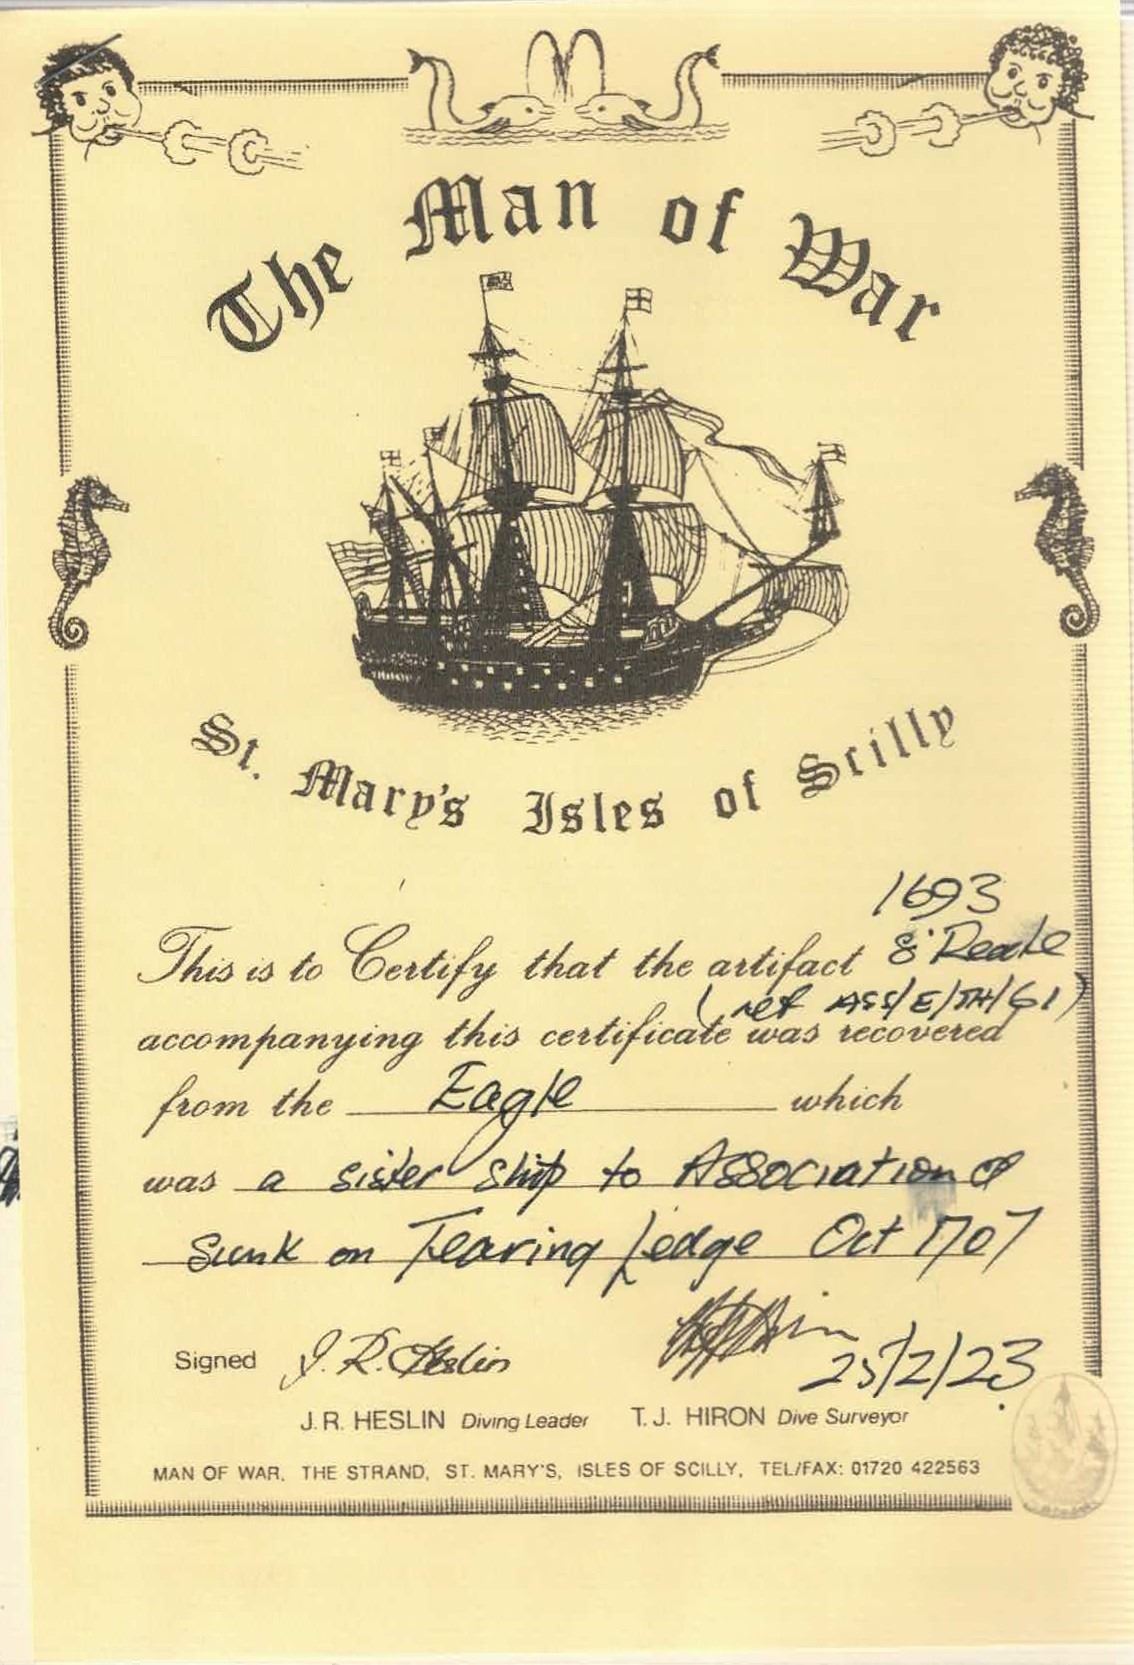 The Man of War
St. Mary's Isles of Scilly
1693
This is to Certify that the artifact 8' Reale
(ref ASS/E/TH/61)
accompanying this certificate was recovered
from the Eagle which
was a sister ship to Association &
Sunk on Tearing Ledge Oct 1707
Signed J. R. Heslin
25/2/23
J.R. HESLIN Diving Leader T.J. HIRON Dive Surveyor
MAN OF WAR, THE STRAND, ST. MARY'S, ISLES OF SCILLY, TEL/FAX: 01720 422563